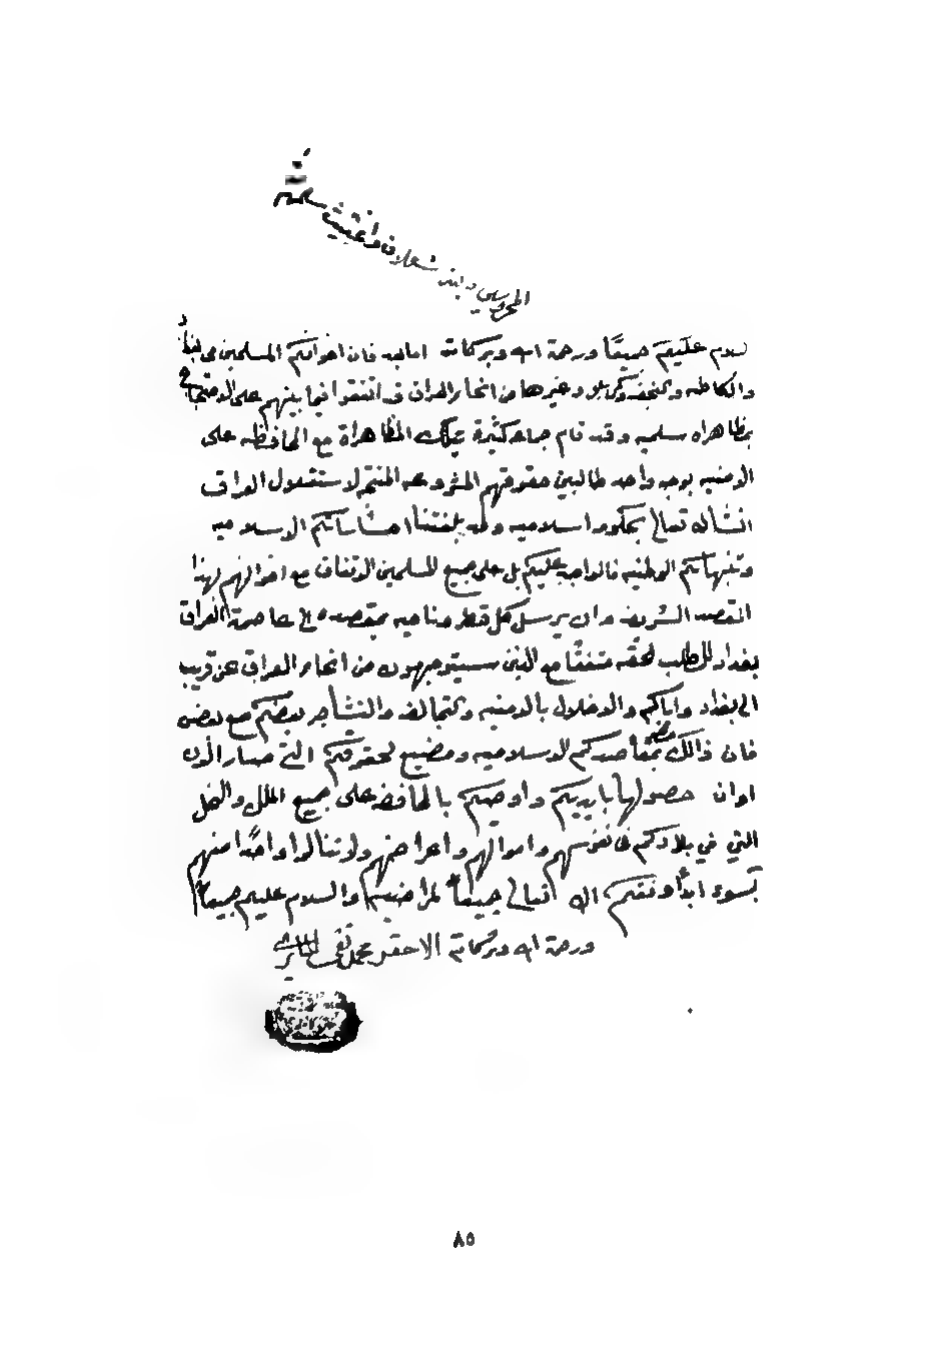 السلام عليكم جميعًا ورحمة الله وبركاته اما بعد فان اخوانكم المسلمين في بغداد
والكاظميه والنجف وكربلا وغيرها من انحاء العراق قد اتفقوا فيما بينهم على الاجتماع
بمظاهراه سلميه وقد قام جماعه كثيرة بتلك المظاهراة مع المحافظه على
الامنيه بوجه واحد طالبين حقوقهم المشروعه المنتجه لاستقلال العراق
انشأ الله تعالى بحكومه اسلاميه وقد بلغتنا احساساتكم الاسلاميه
وتنبهاتكم الوطنيه فالواجب عليكم بل على جميع المسلمين الاتفاق مع اخوانهم بهذا
المقصد الشريف وان يرسل كل قطر وناحيه بمقصده الى عاصمة العراق
بغداد للطلب لحقه متفقًا مع الذين سيتوجهون من انحاء العراق عن قريب
الى بغداد واياكم والاخلال بالامنيه والتخالف والتشاجر بعضكم مع بعض
فان ذالك مضر بمقاصدكم الاسلاميه ومضيع لحقوقكم التي صار الان
اوان حصولها بايديكم واوصيكم بالمحافضه على جميع الملل والنحل
التي في بلادكم في نفوسهم واموالهم واعراضهم ولا تنالوا واحدًا منهم
بسوء ابدًا وفقكم الله تعالى جميعاً لمراضيه والسلام عليكم جميعاً
ورحمة الله وبركاته الاحقر محمد تقي الحائري الشيرازي
٨٥